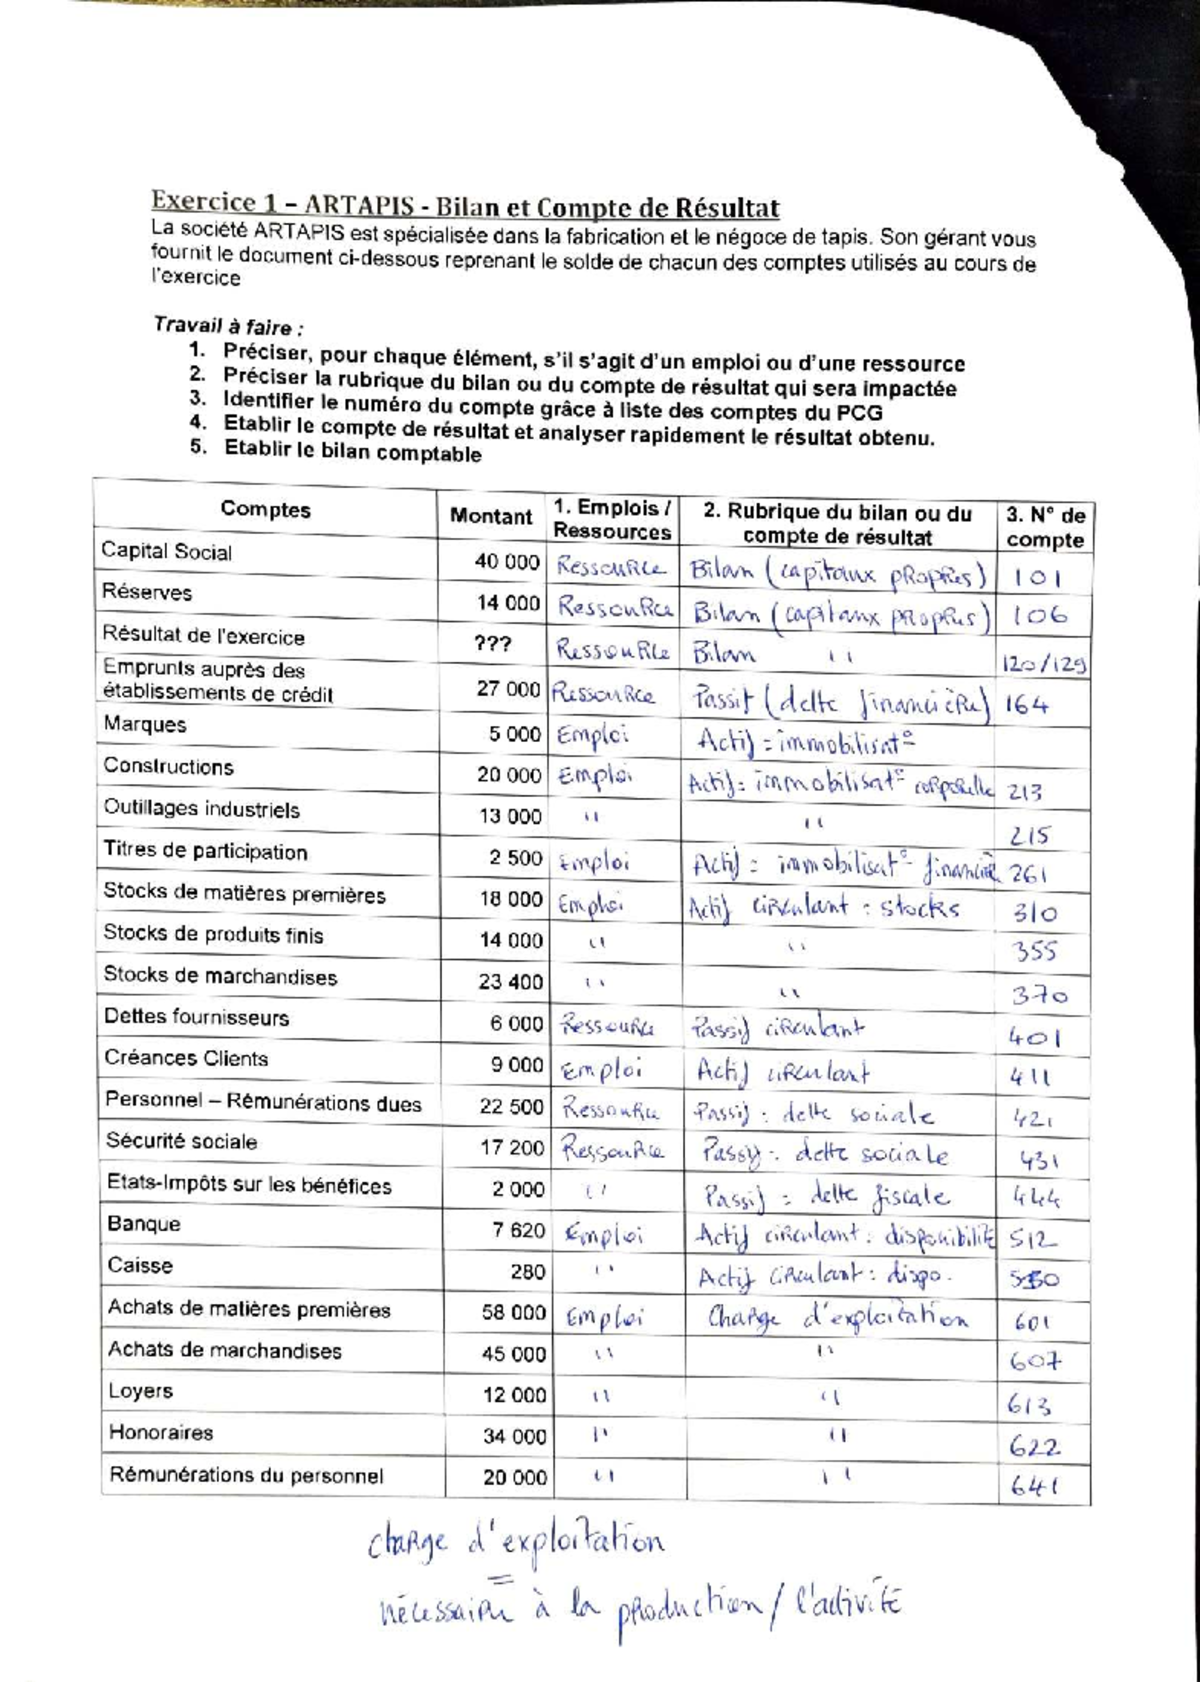 Exercice 1 – ARTAPIS - Bilan et Compte de Résultat
La société ARTAPIS est spécialisée dans la fabrication et le négoce de tapis. Son gérant vous
fournit le document ci-dessous reprenant le solde de chacun des comptes utilisés au cours de
l'exercice
Travail à faire :
1. Préciser, pour chaque élément, s'il s'agit d'un emploi ou d'une ressource
2. Préciser la rubrique du bilan ou du compte de résultat qui sera impactée
3. Identifier le numéro du compte grâce à liste des comptes du PCG
4. Etablir le compte de résultat et analyser rapidement le résultat obtenu.
5. Etablir le bilan comptable
Comptes Montant 1. Emplois / Ressources 2. Rubrique du bilan ou du compte de résultat 3. N° de compte
Capital Social 40 000 Ressource Bilan (capitaux propres) 101
Réserves 14 000 Ressource Bilan (capitaux propres) 106
Résultat de l'exercice ??? Ressource Bilan '' 120/129
Emprunts auprès des établissements de crédit 27 000 Ressource Passif (dette financière) 164
Marques 5 000 Emploi Actif = immobilisat°
Constructions 20 000 Emploi Actif = immobilisat° corporelle 213
Outillages industriels 13 000 '' '' 215
Titres de participation 2 500 Emploi Actif = immobilisat° financière 261
Stocks de matières premières 18 000 Emploi Actif circulant : stocks 310
Stocks de produits finis 14 000 '' '' 355
Stocks de marchandises 23 400 '' '' 370
Dettes fournisseurs 6 000 Ressource Passif circulant 401
Créances Clients 9 000 Emploi Actif circulant 411
Personnel – Rémunérations dues 22 500 Ressource Passif : dette sociale 421
Sécurité sociale 17 200 Ressource Passif : dette sociale 431
Etats-Impôts sur les bénéfices 2 000 '' Passif = dette fiscale 444
Banque 7 620 Emploi Actif circulant : disponibilité 512
Caisse 280 '' Actif circulant : dispo. 530
Achats de matières premières 58 000 Emploi Charge d'exploitation 601
Achats de marchandises 45 000 '' '' 607
Loyers 12 000 '' '' 613
Honoraires 34 000 '' '' 622
Rémunérations du personnel 20 000 '' '' 641
charge d'exploitation
=
nécessaire à la production / l'activité